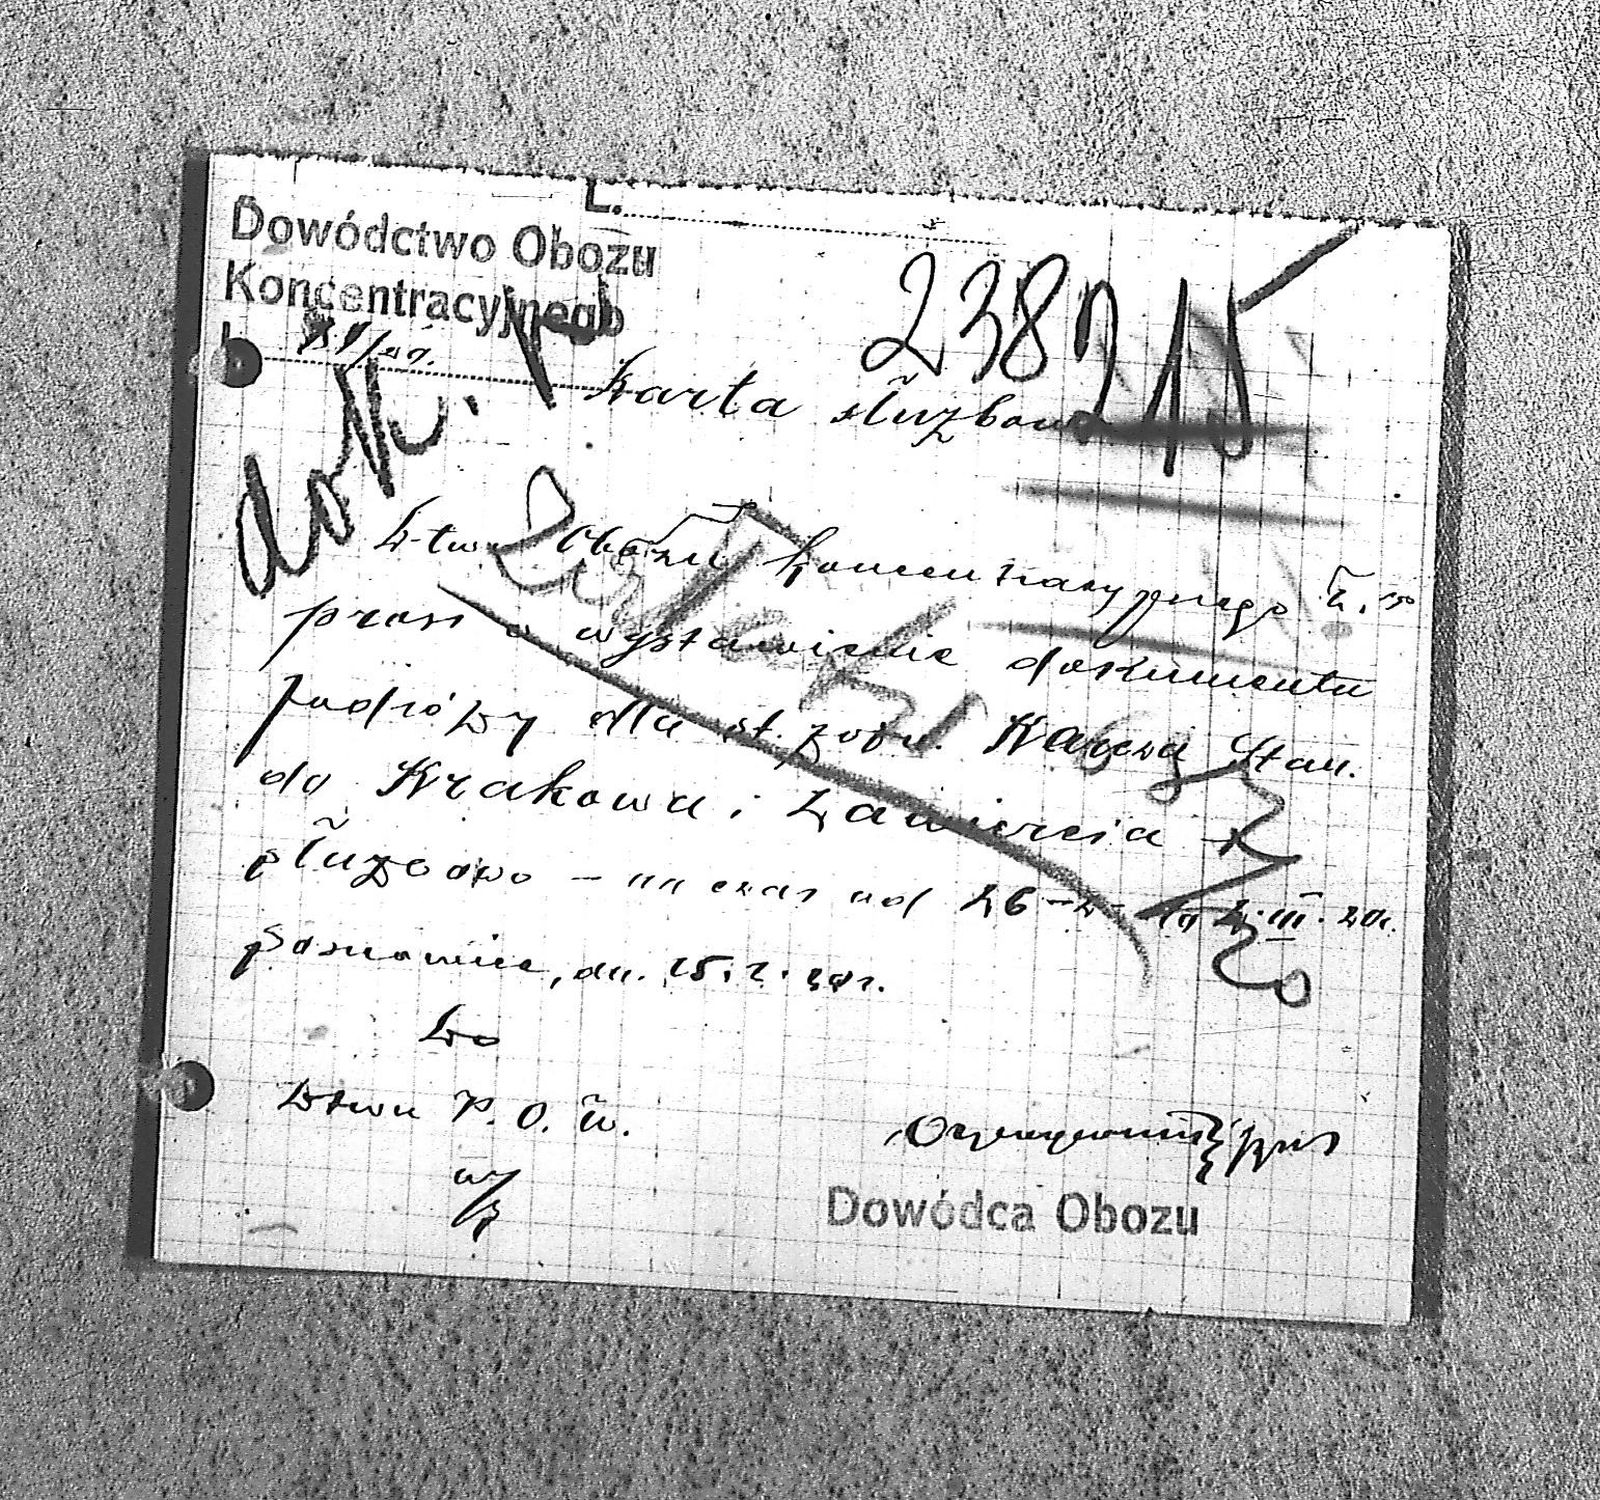 L.
Dowództwo Obozu
Koncentracyjnego
dok. 238 215
Karta służbowa
D-two Obozu koncentracyjnego
prosi o wystawienie dokumentu
podróży dla st. żołn. Stan.
do Krakowa i Zawiercia
służbowo – na czas od 26 – III. 20r.
Sosnowice, dn. 25.2.20r.
Do
Dtwu P. O. U.
w/m
Dowódca Obozu